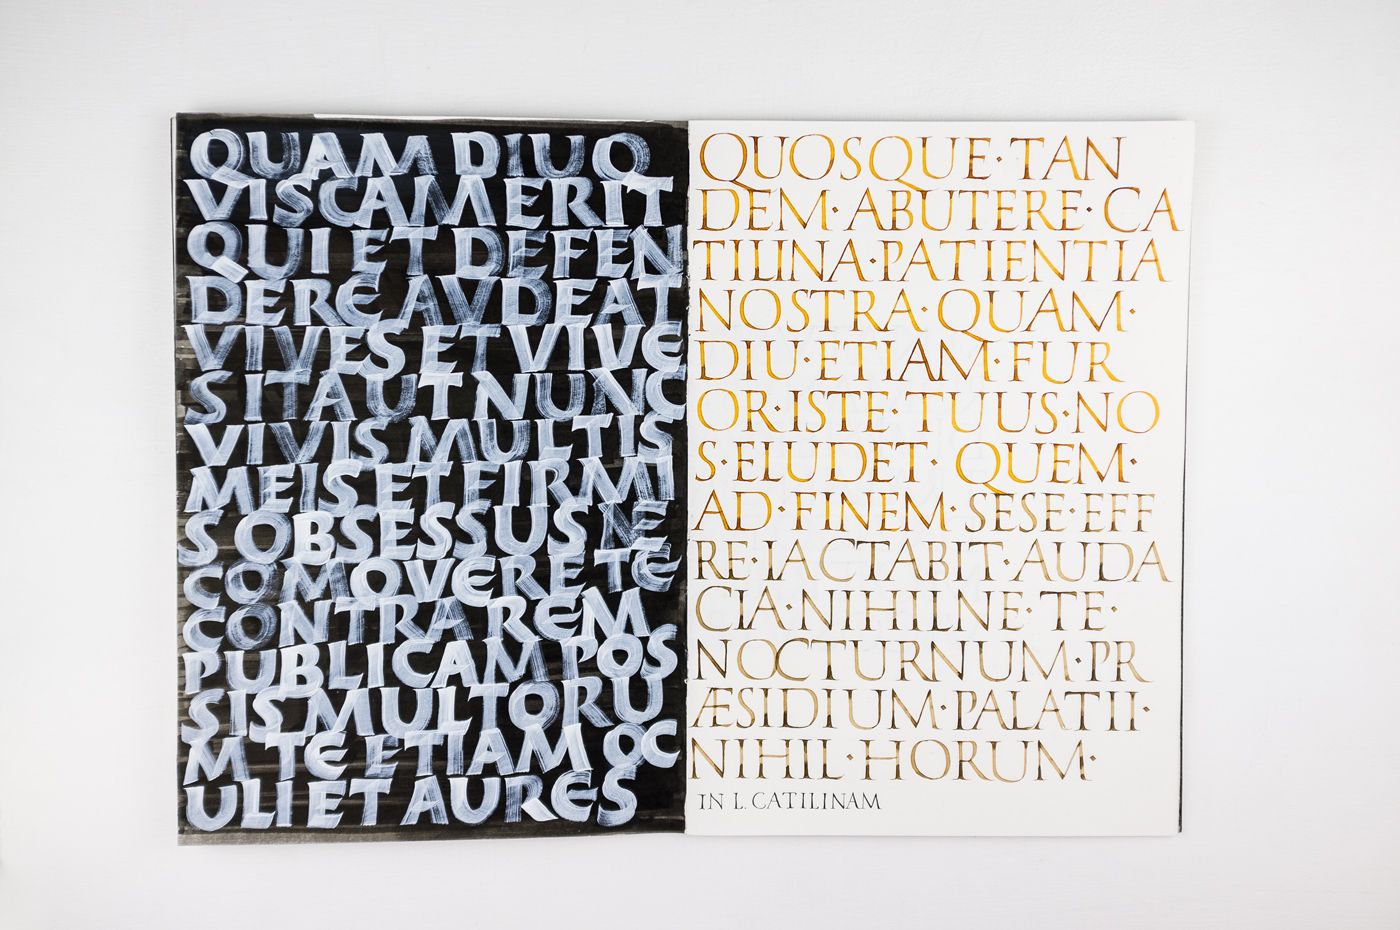 QUAM DIU Q
VISCAM ERIT
QUI ET DEFEN
DERE AVDEAT
VIVES ET VIVE
S ITA UT NUNC
VIVIS MULTIS
MEIS ET FIRMI
S OBSESSUS NE
COMOVERE TE
CONTRA REM
PUBLICAM POS
SIS MULTORU
M TE ETIAM OC
ULI ET AURES
QUOSQUE·TAN
DEM·ABUTERE·CA
TILINA·PATIENTIA
NOSTRA·QUAM·
DIU·ETIAM·FUR
OR·ISTE·TUUS·NO
S·ELUDET·QUEM·
AD·FINEM·SESE·EFF
RE·IACTABIT·AUDA
CIA·NIHILNE·TE·
NOCTURNUM·PR
ÆSIDIUM·PALATII·
NIHIL·HORUM·
IN L. CATILINAM